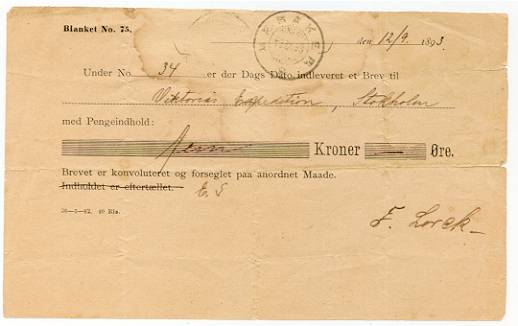 Blanket No. 75.
den 12/9. 1893
Under No. 34 er der Dags Dato indleveret et Brev til
Viktorias Expedition, Stokholm
med Pengeindhold:
Kroner — Øre.
Brevet er konvoluteret og forseglet paa anordnet Maade.
Indholdet er eftertællet. E. S
F. Lorck